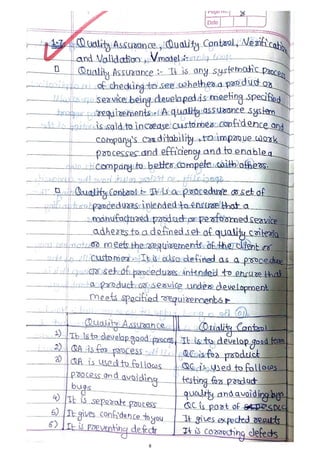 Page No. 31
Date
1.7 Quality Assurance, Quality Control, Verification
and Validation, V model :-
1) Quality Assurance :- It is any systematic process
of checking to see whether a product or
service being developed is meeting specified
requirements. A quality assurance system
is said to increase customer confidence and
company's craditability, to improve work
processes and efficiency and to enable a
company to better compete with others.
Quality Control :- It is a procedure or set of
procedures intended to ensure that a
manufactured product or performed service
adheres to a defined set of quality criteria
or meets the requirements of the client or
customer. It is also defined as a procedure
or set of procedures intended to ensure that
a product or service under development
meets specified requirements.
Quality Assurance Quality Control
1) It is to develop good process, It is to develop good
2) QA is for process QC is for product
3) QA is used to follows QC is used to follows
process and avoiding testing for product
bugs quality and avoiding bugs
4) It is seperate process QC is part of SDLC
5) It gives confidence to you It gives expected results
6) It is preventing defect It is correcting defects